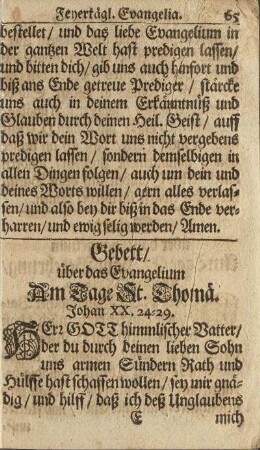 Feyertägl. Evangelia. 65
bestellet/ und das liebe Evangelium in
der gantzen Welt hast predigen lassen/
und bitten dich/ gib uns auch hinfort und
biß ans Ende getreue Prediger / stärcke
uns auch in deinem Erkäuntnüß und
Glauben durch deinen Heil. Geist / auff
daß wir dein Wort uns nicht vergebens
predigen lassen / sondern demselbigen in
allen Dingen folgen/ auch um dein und
deines Worts willen/ gern alles verlas-
sen/ und also bey dir biß in das Ende ver-
harren/ und ewig selig werden/ Amen.
Gebett/
über das Evangelium
Am Tage St. Thomä.
Johan XX. 24-29.
HErr GOTT himmlischer Vatter/
der du durch deinen lieben Sohn
uns armen Sündern Rath und
Hülffe hast schaffen wollen/ sey mir gnä-
dig/ und hilff/ daß ich deß Unglaubens
E mich